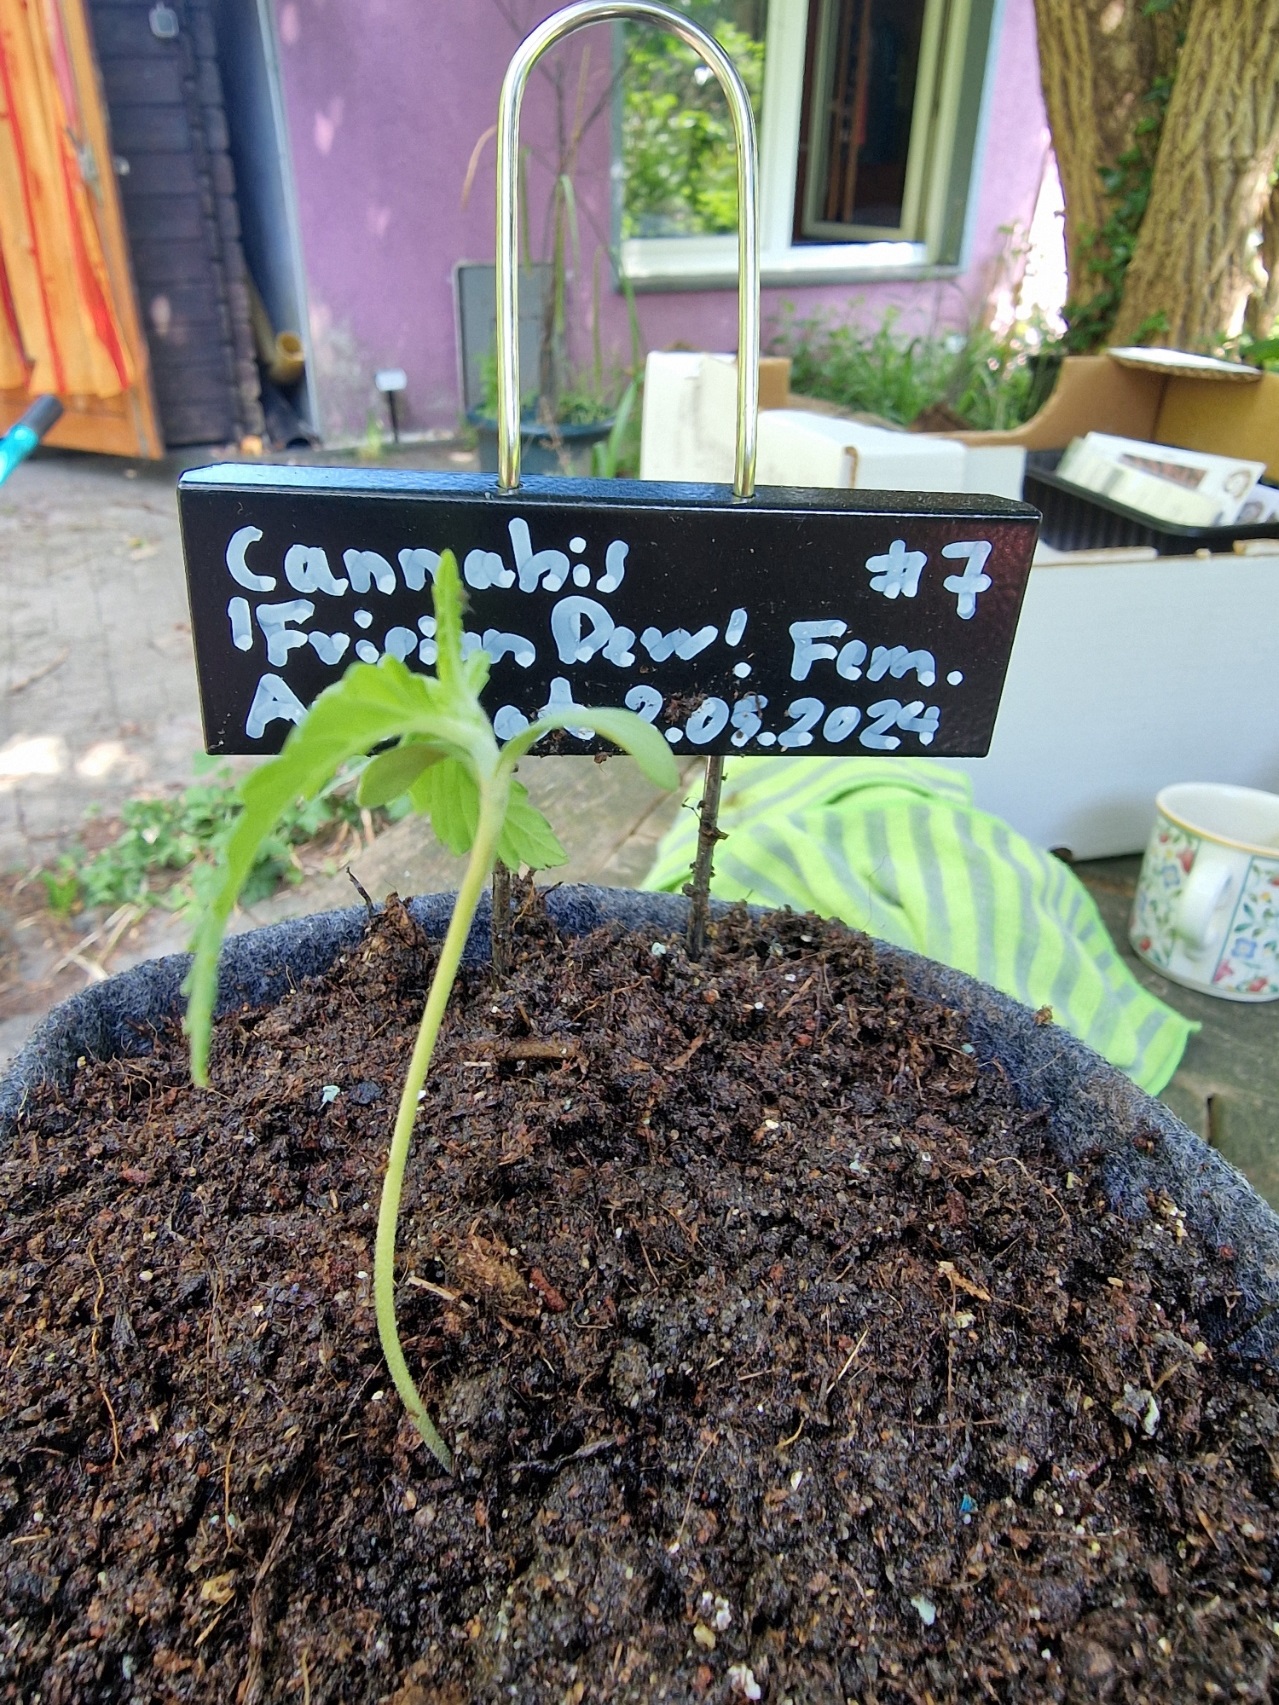 Cannabis #7
!Frisian Dew! Fem.
2.05.2024